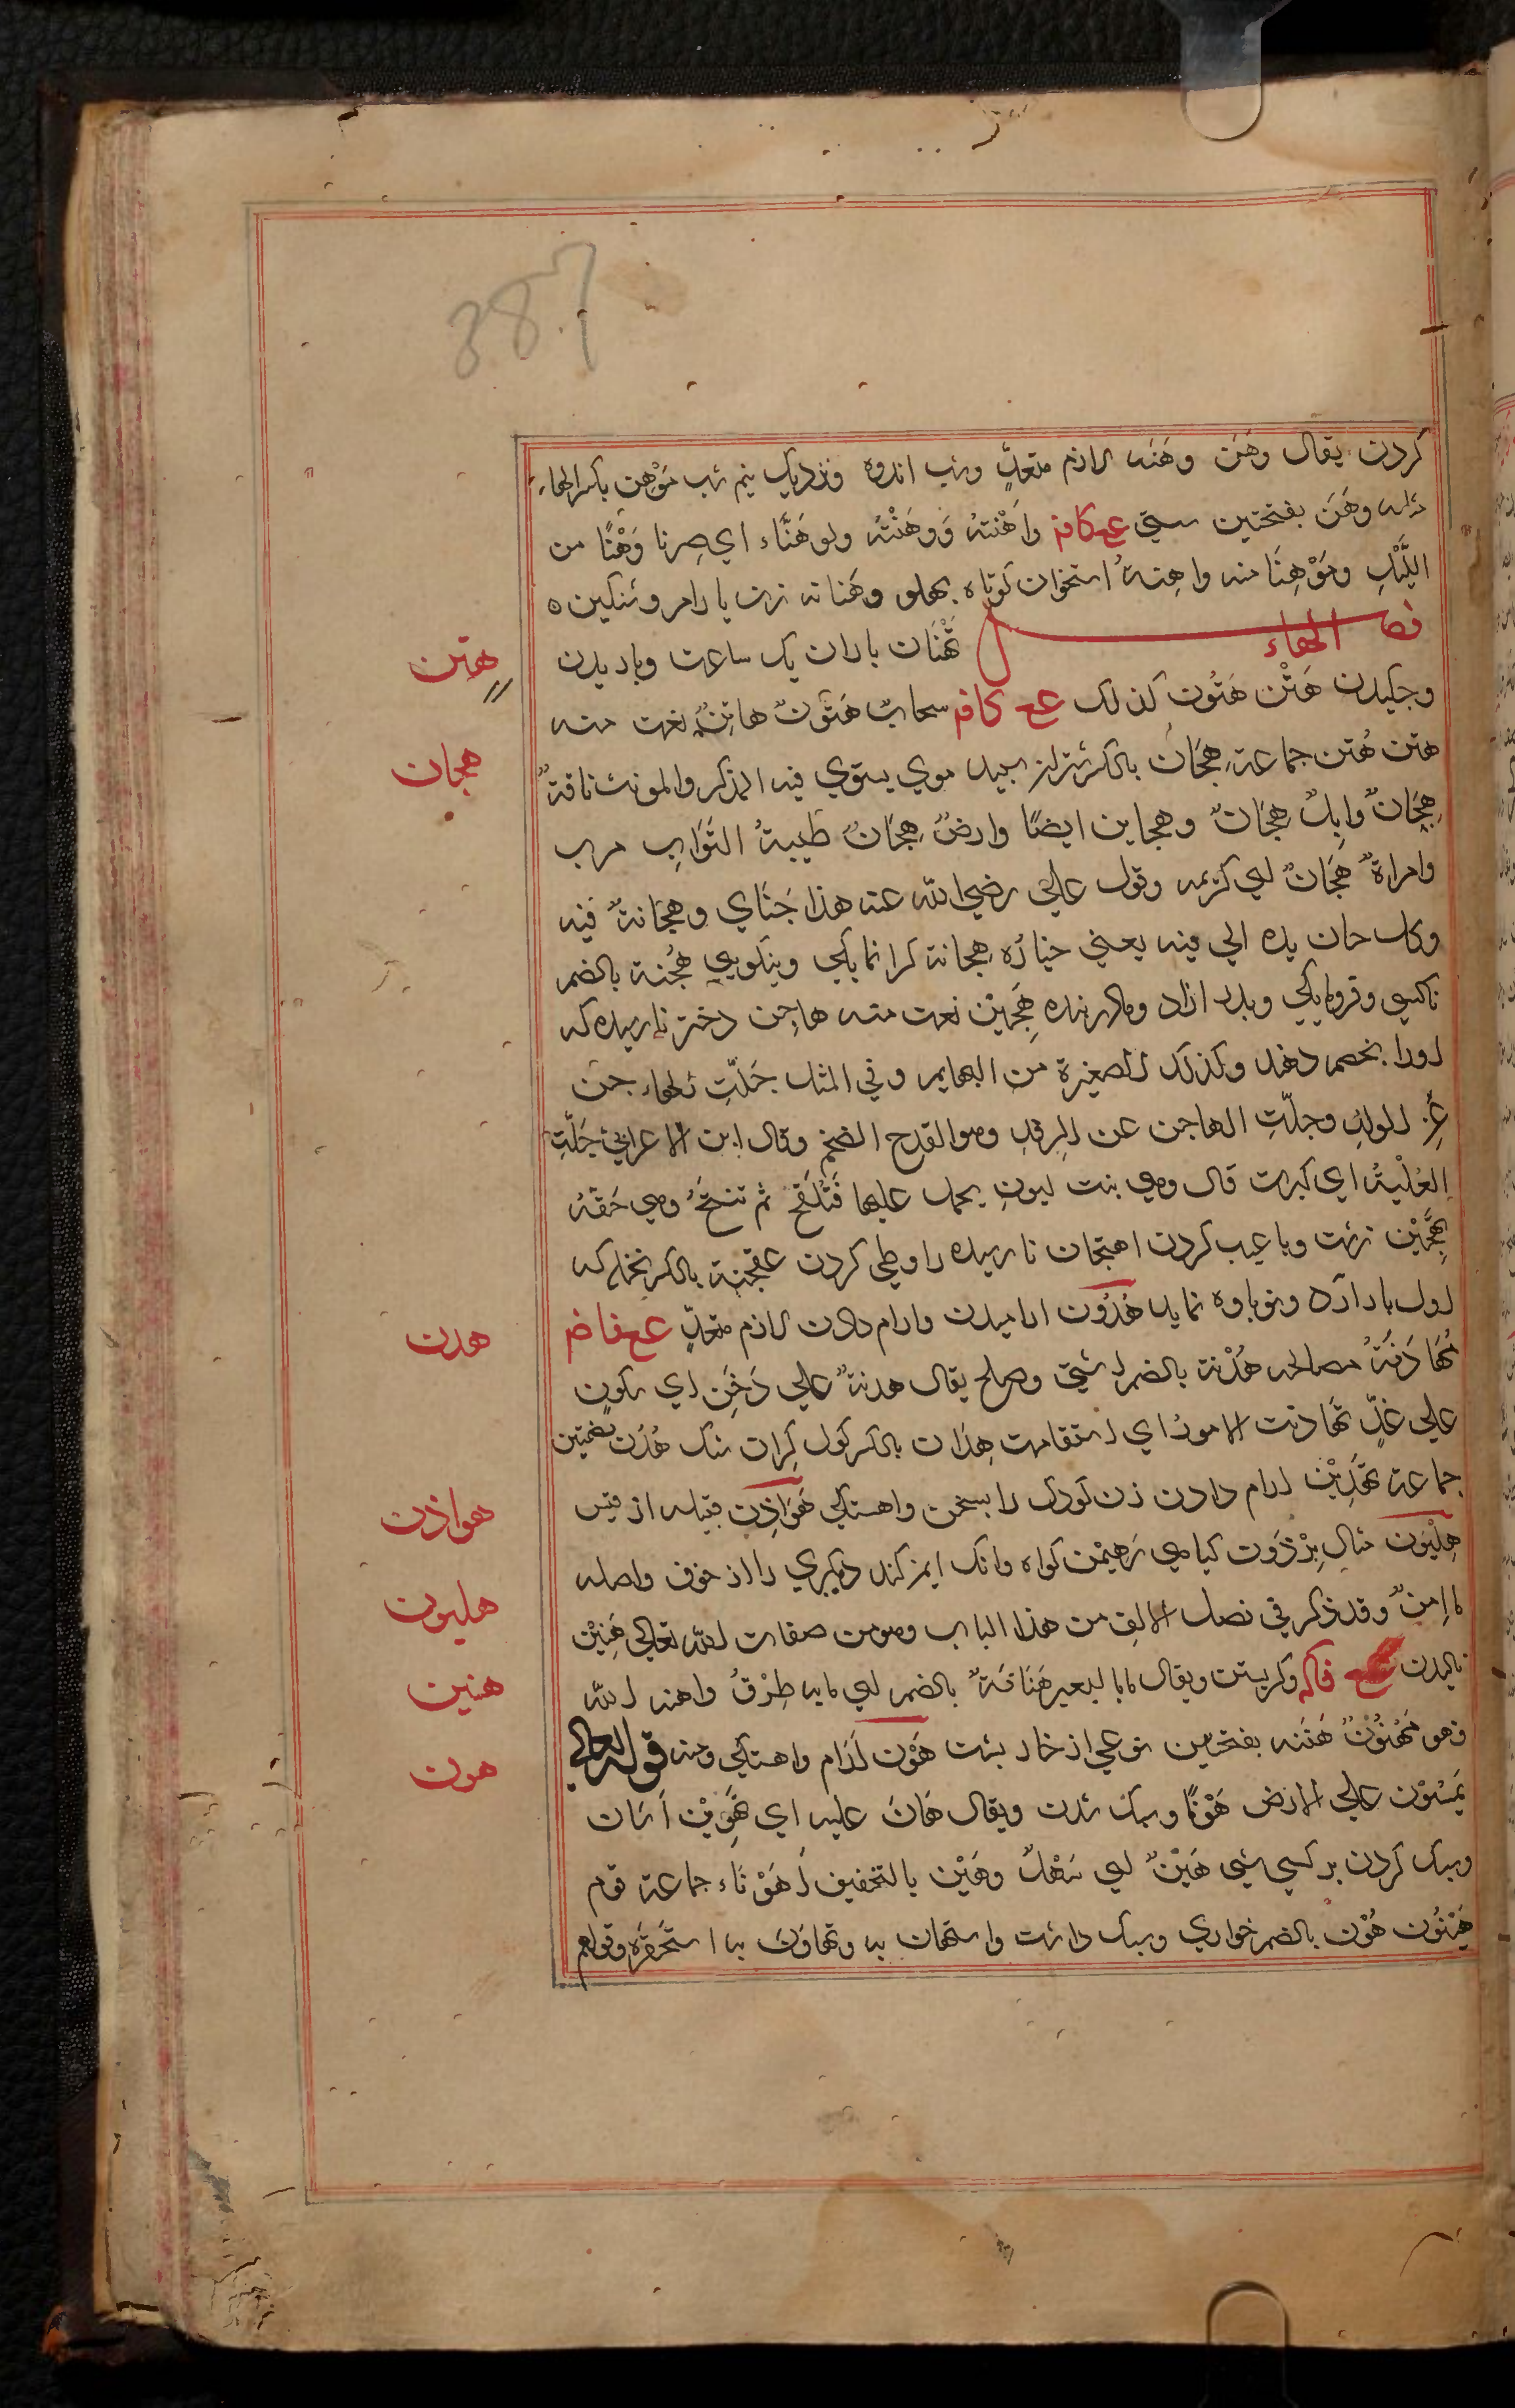 387
كردن يقال وهن وهنه لازم متعدٍّ وشب اندوه ونزديك نيم شب مَوْهِن بكسر الهاء
وهَن بفتحتين سستى عح كافـ واَهْنتهُ وَوهَنْتُه ولو هَنَّاء اي صِرنا وَهْنًا من
اللَّيْلِ ومَوْهِنًا منه واهِنةُ استخوان كوتاه پهلو وهنانه زن با رام وسنكين ٥
فصل الهاء تَهْتَان باران يك ساعت وباريدن
وچكيدن هَتْن هَتُون كذلك عح كافـ سحابٌ هَتُونٌ هاتِنٌ نعت منه
هتن هُتن جماعة هِجَان بالكسر شتران سپيد موي يستوي فيه المذكر والمونث ناقةٌ
هِجَانٌ وابلٌ هِجَانٌ وهجاين ايضًا وارضٌ هِجَانٌ طيبةُ التُّرابِ مرب
وامراةٌ هِجَانٌ اي كريمه وقول علي رضي الله عنه هذا جَنَاي وهِجَانهُ فيه
وكل جان يده الي فيه يعني خيارُه هِجانة كرانمايكي ونيكويي هُجْنة بالضم
ناكسي وفرومايكي وپدر ازاد ومادر بنده هَجِين نعت منه هاجِن دختر نارسيده كه
اورا بخصم دهند وكذلك الصغيرة من البهايم وفي المثل جَلَّتِ الهاجن
عَنِ الولدِ وجلَّتِ الهاجن عن الرفدِ وهو القدح الضخم وقال ابن الاعرابي جَلَّتِ
العُلْبةُ اي كبرت قال وهي بنت لبونٍ يحمل عليها فَتُلقح ثم تنتج وهي حقه
تَهْجِين زشت وبا عيب كردن اهتجان نارسيده را وطي كردن بالكسر نخله كه
اول بار آرد ونوباوه نمايد هُدُون اراميدن وارام دادن لازم متعدٍّ عح فاضـ
مُهَادَنةُ مصالحه هُدْنة بالضم اشتي وصلح يقال هدنةٌ علي دَخَنٍ اي سكون
علي غلٍّ تهادنت الامورُ اي استقامت هِدَان بالكسر كول كران سنك هُدُن بضمتين
جماعة تهدِيْن ارام دادن زن كودك را بسخن واهستكي هَوَازِن قبيله از قيس
هِلْيَون مثال بِرْذَوْن كياهي مُهَيْمِن كواه وانك ايمن كند ديكري را از خوف واصله
مااِمِنٌ وقد ذكر في فصل الالف من هذا الباب وهو من صفات الله تعالي هَنِيْن
ناليدن عح فاكه وكريستن ويقال ما بالبعير هُنَانَةٌ بالضم اي ما به طِرْقٌ واهنه الله
فهو مَهْنُوْنٌ هَنَنه بفتحتين نوعي از خار پشت هَوْن ارام واهستكي ومنه قوله تعالي
يَمْشُوْن علي الارض هَوْنًا وسبك شدن ويقال هَانَ عليه اي هَوِين آسان
وسبك كردن بر كسي شي هَيّنٌ اي سَهْلٌ وهَيْن بالتخفيف اَهْوِنَاء جماعة قوم
هَيْنُون هُوْن بالضم خواري وسبك داشت واستهان به وتهاوَنَ به استحقرَه وقولهم
هتن
هجان
هدن
هوازن
هليون
هنين
هون